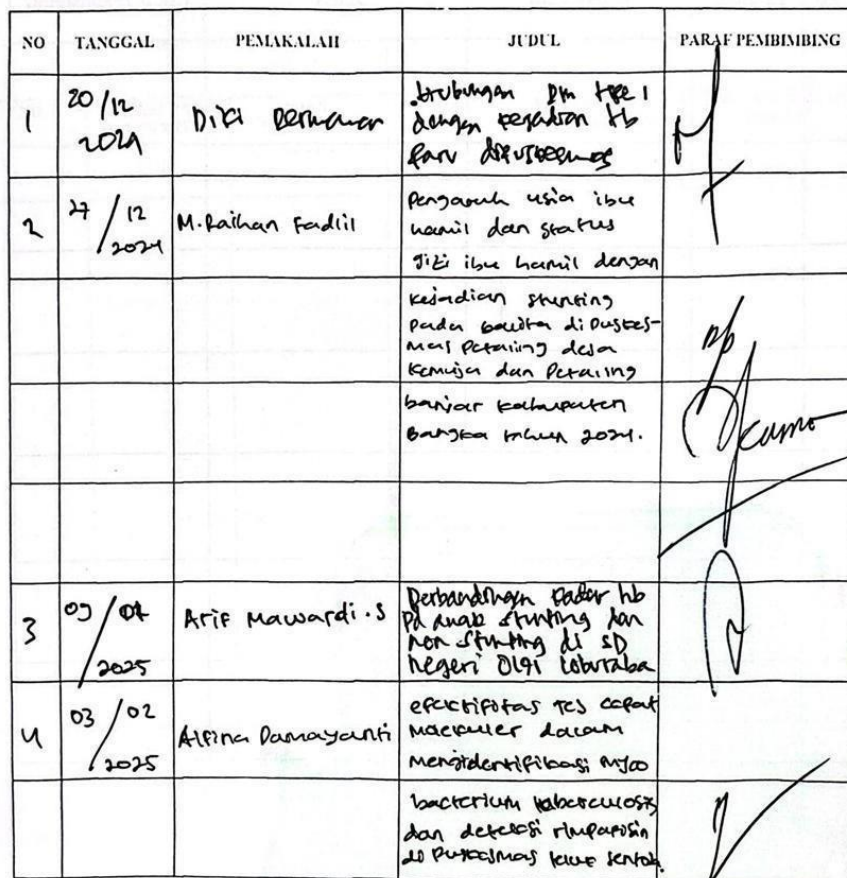 NO TANGGAL PEMAKALAH JUDUL PARAF PEMBIMBING
1
20/12
2024
Diki
Hubungan Dm tipe 1
dengan kejadian tb
paru dipuskesmas
2
27/12
2024
M. Raihan Fadlil
Pengaruh usia ibu
hamil dan status
gizi ibu hamil dengan
kejadian stunting
pada balita di Puskes-
mas Petaling desa
Kemuja dan Petaling
banjar kabupaten
Bangka tahun 2024.
3
09/
2025
Arif Mawardi.S
Perbandingan kadar hb
pd anak stunting dan
non stunting di SD
negeri
4
03/02
2025
Alfina Damayanti
efektifitas tes cepat
dalam
mengidentifikasi Myco
bacterium tuberculosis
dan deteksi
di Puskesmas